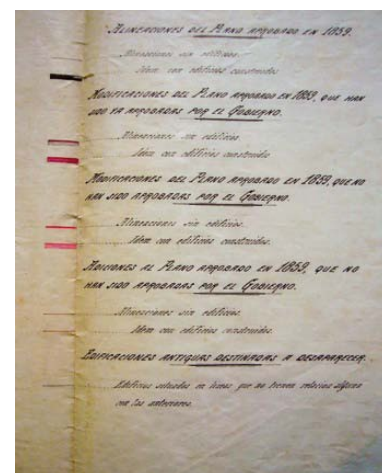 ALINEACIONES DEL PLANO APROBADO EN 1859.
Alineaciones sin edificios.
Idem con edificios construidos
MODIFICACIONES DEL PLANO APROBADO EN 1859, QUE HAN
SIDO YA APROBADAS POR EL GOBIERNO.
Alineaciones sin edificios.
Idem con edificios construido
MODIFICACIONES DEL PLANO APROBADO EN 1859, QUE NO
HAN SIDO APROBADAS POR EL GOBIERNO.
Alineaciones sin edificios.
Idem con edificios construidos.
ADICIONES AL PLANO APROBADO EN 1859, QUE NO
HAN SIDO APROBADAS POR EL GOBIERNO.
Alineaciones sin edificios.
Idem con edificios construidos.
EDIFICACIONES ANTIGUAS DESTINADAS A DESAPARECER.
Edificios situados en lineas que no tienen relacion alguna
con las anteriores.